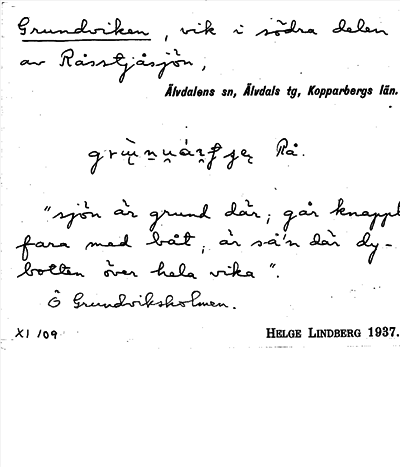 Grundviken, vik i södra delen
av Råsstjåsjön,
Älvdalens sn, Älvdals tg, Kopparbergs län.
Rå.
"sjön är grund där; går knappt
fara med båt; är så'n där dy-
botten över hela vika".
Ö Grundviksholmen.
XI 109
HELGE LINDBERG 1937.